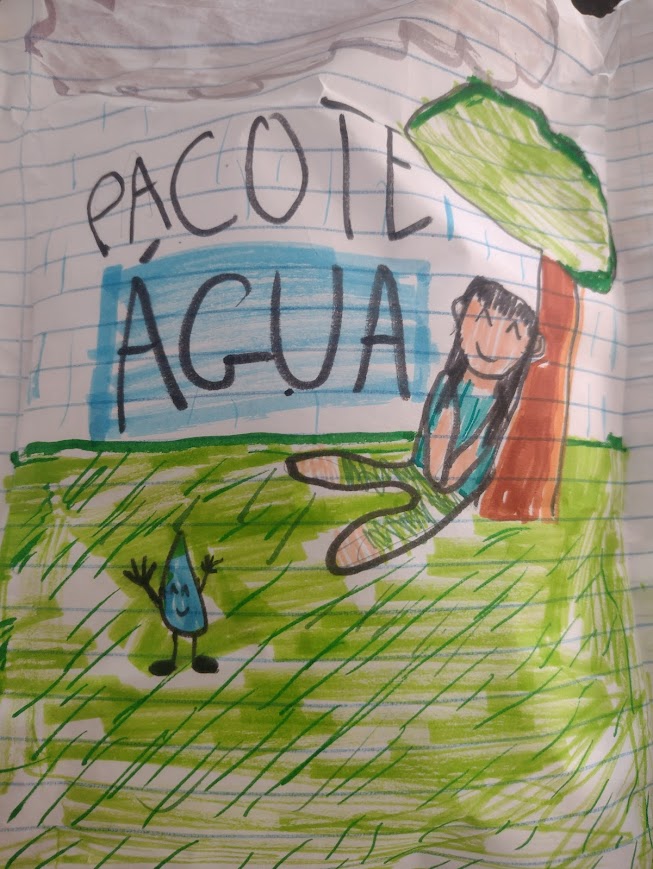 PACOTE
ÁGUA